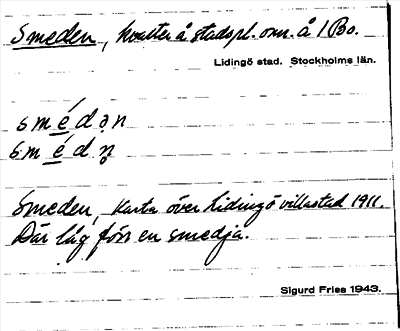 Smeden, kvarter å stadspl. omr. å 1 Bo.
Lidingö stad. Stockholms län.
smédən
smédn̥
Smeden, Karta över Lidingö villastad 1911.
Där låg förr en smedja.
Sigurd Fries 1943.